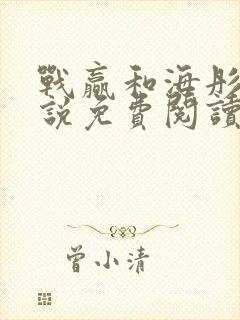 戰贏和海彤
說免費閱讀
曾小清